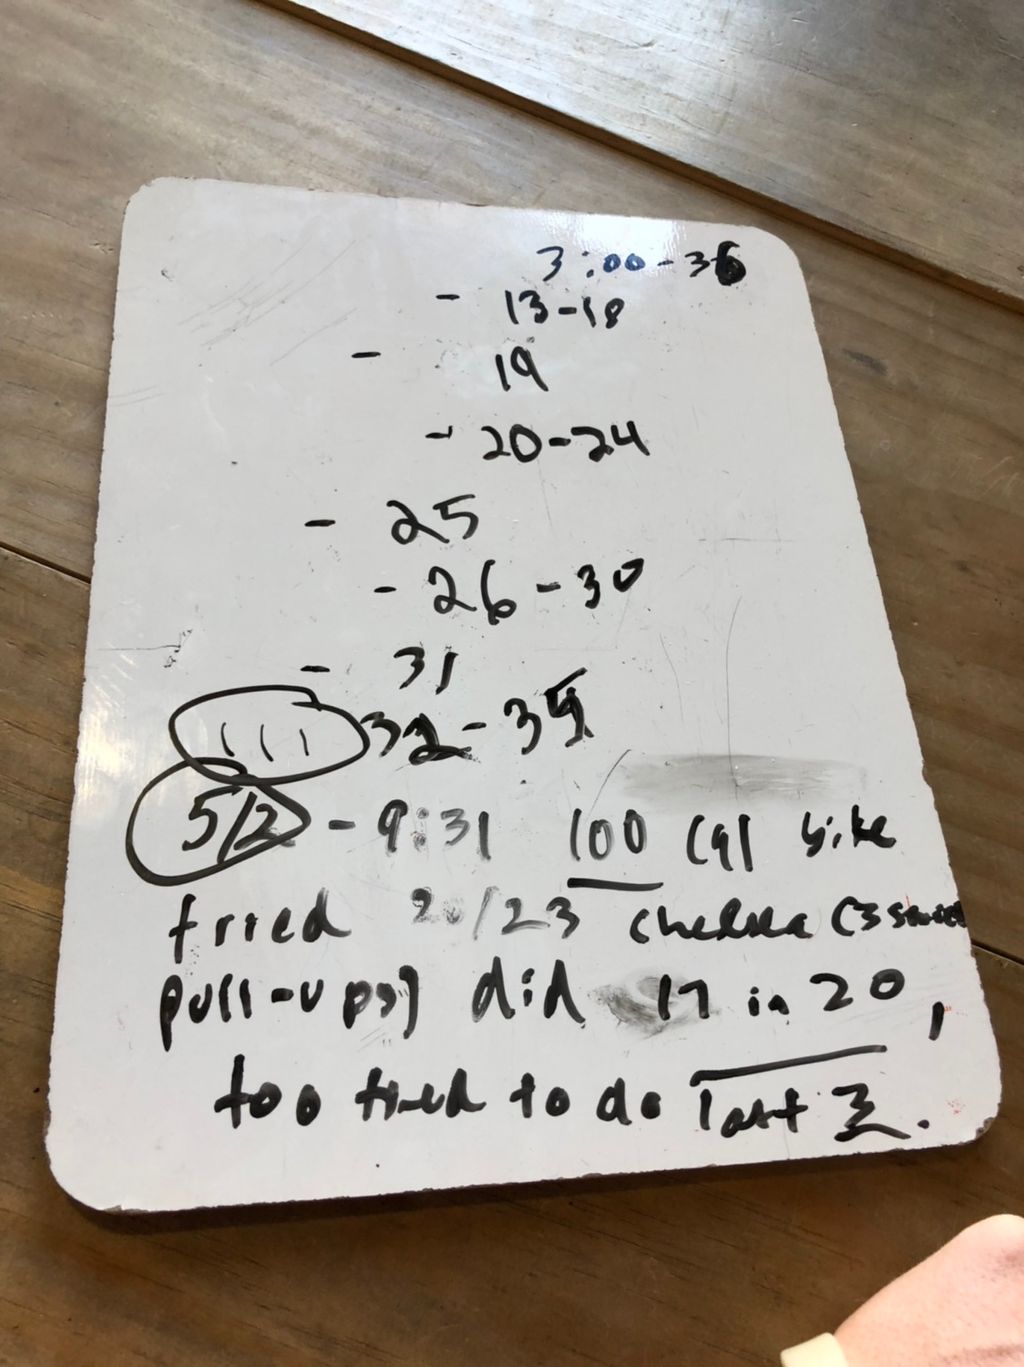 3:00-36
- 13-18
- 19
- 20-24
- 25
- 26-30
- 31
111 32-35
5/2 - 9:31 100 cal bike
tried 20/23 chelsea (3
pull-ups) did 17 in 20,
too tired to do last 3.